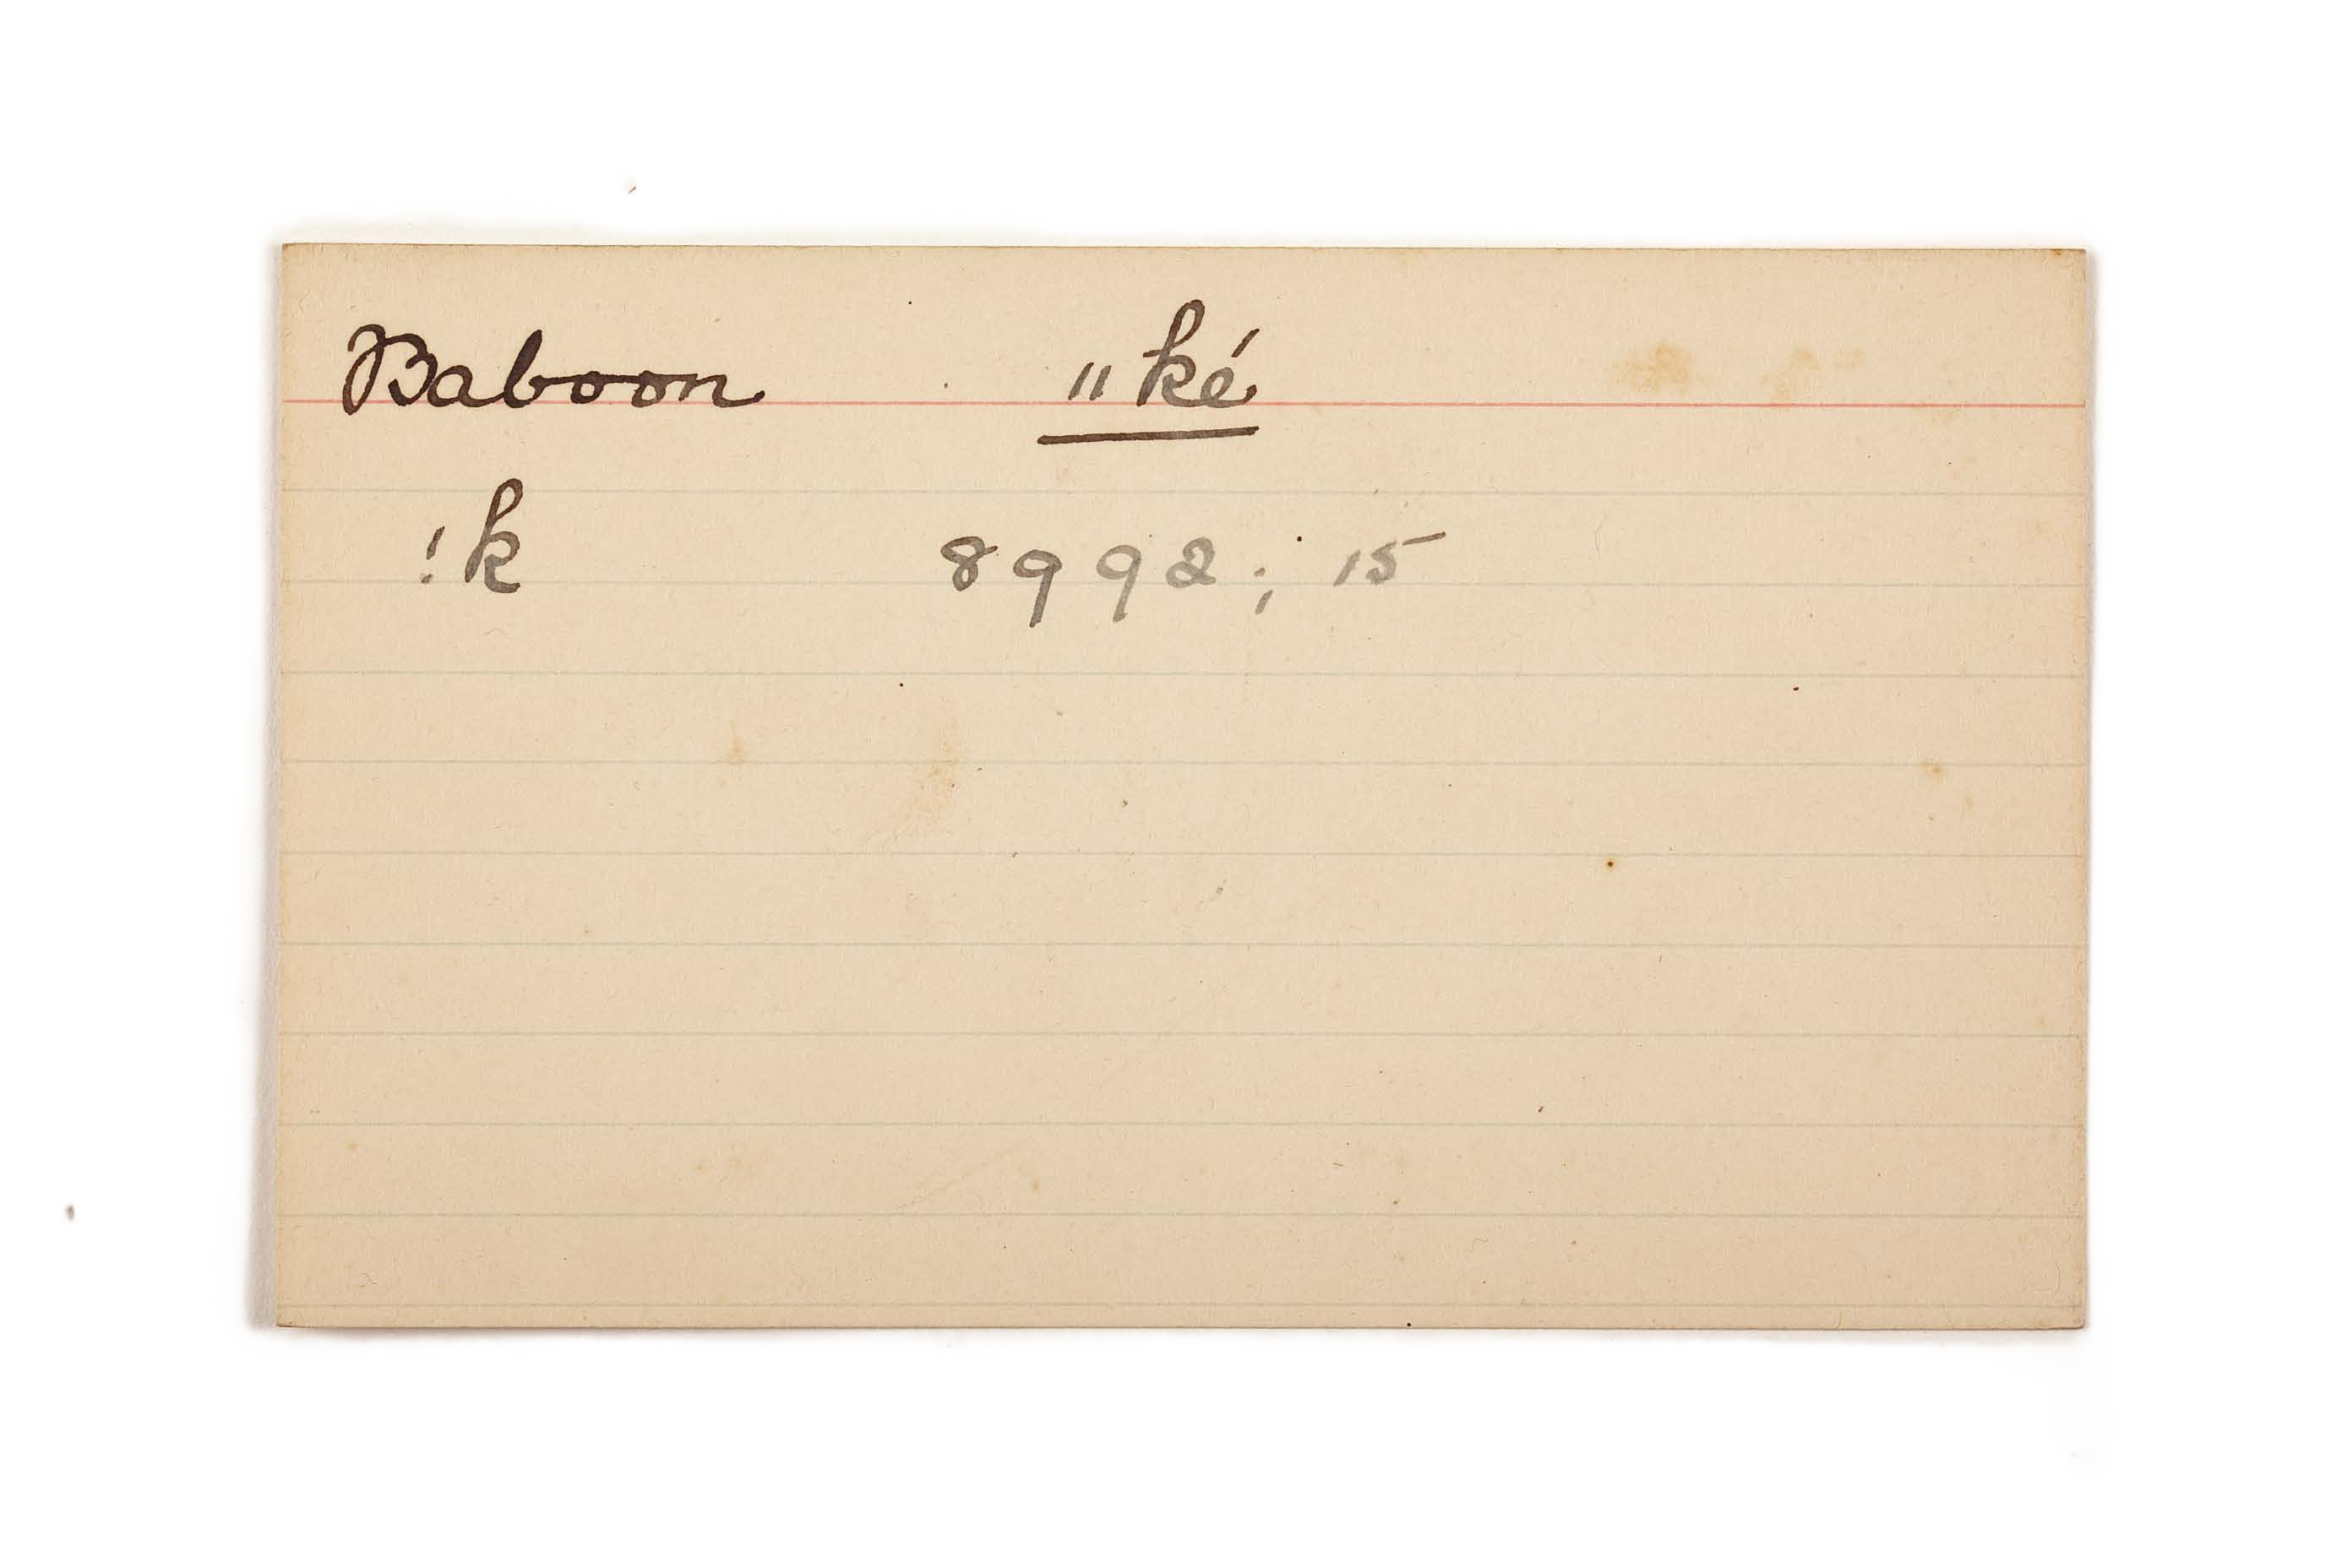 Baboon "ké
!k 8992; 15